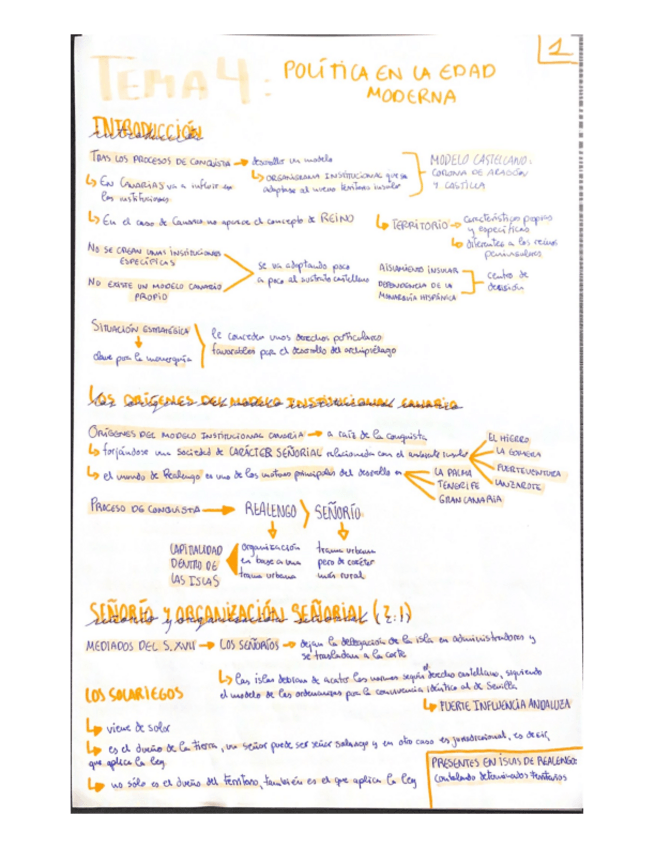 1
TEMA 4: POLÍTICA EN LA EDAD
MODERNA
INTRODUCCIÓN
TRAS LOS PROCESOS DE CONQUISTA → desarrollo un modelo
↳ ORGANIGRAMA INSTITUCIONAL que se
adaptase al nuevo territorio insular
MODELO CASTELLANO:
CORONA DE ARAGÓN
Y CASTILLA
↳ En CANARIAS va a influir en
las instituciones
↳ En el caso de Canarias no aparece el concepto de REINO
↳ TERRITORIO → características propias
y específicas
↳ diferentes a los reinos
peninsulares
NO SE CREAN UNAS INSTITUCIONES
ESPECÍFICAS
NO EXISTE UN MODELO CANARIO
PROPIO
se va adaptando poco
a poco al sustrato castellano
AISLAMIENTO INSULAR
DEPENDENCIA DE LA
MONARQUÍA HISPÁNICA
centro de
decisión
SITUACIÓN ESTRATÉGICA
↓
clave por la monarquía
le conceden unos derechos particulares
favorables para el desarrollo del archipiélago
LOS ORÍGENES DEL MODELO INSTITUCIONAL CANARIO
ORÍGENES DEL MODELO INSTITUCIONAL CANARIA → a raíz de la conquista
↳ forjándose una sociedad de CARÁCTER SEÑORIAL relacionada con el ambiente insular
EL HIERRO
LA GOMERA
FUERTEVENTURA
LANZAROTE
↳ el mundo de Realengo es uno de los motores principales del desarrollo en
LA PALMA
TENERIFE
GRAN CANARIA
PROCESO DE CONQUISTA → REALENGO > SEÑORÍO
CAPITALIDAD
DENTRO DE
LAS ISLAS
organización
en base a una
trama urbana
trama urbana
pero de carácter
más rural
SEÑORÍO Y ORGANIZACIÓN SEÑORIAL (2.1)
MEDIADOS DEL S. XVII → LOS SEÑORÍOS → dejan la delegación de la isla en administradores y
se trasladan a la corte
↳ las islas debían de acatar las normas según el derecho castellano, siguiendo
el modelo de las ordenanzas por la convivencia idéntico al de Sevilla
↳ FUERTE INFLUENCIA ANDALUZA
LOS SOLARIEGOS
↳ viene de solar
↳ es el dueño de la tierra, un señor puede ser señor solariego y en otro caso es jurisdiccional, es decir,
que aplica la ley.
↳ no sólo es el dueño del territorio, también es el que aplica la ley
PRESENTES EN ISLAS DE REALENGO:
controlando determinados territorios